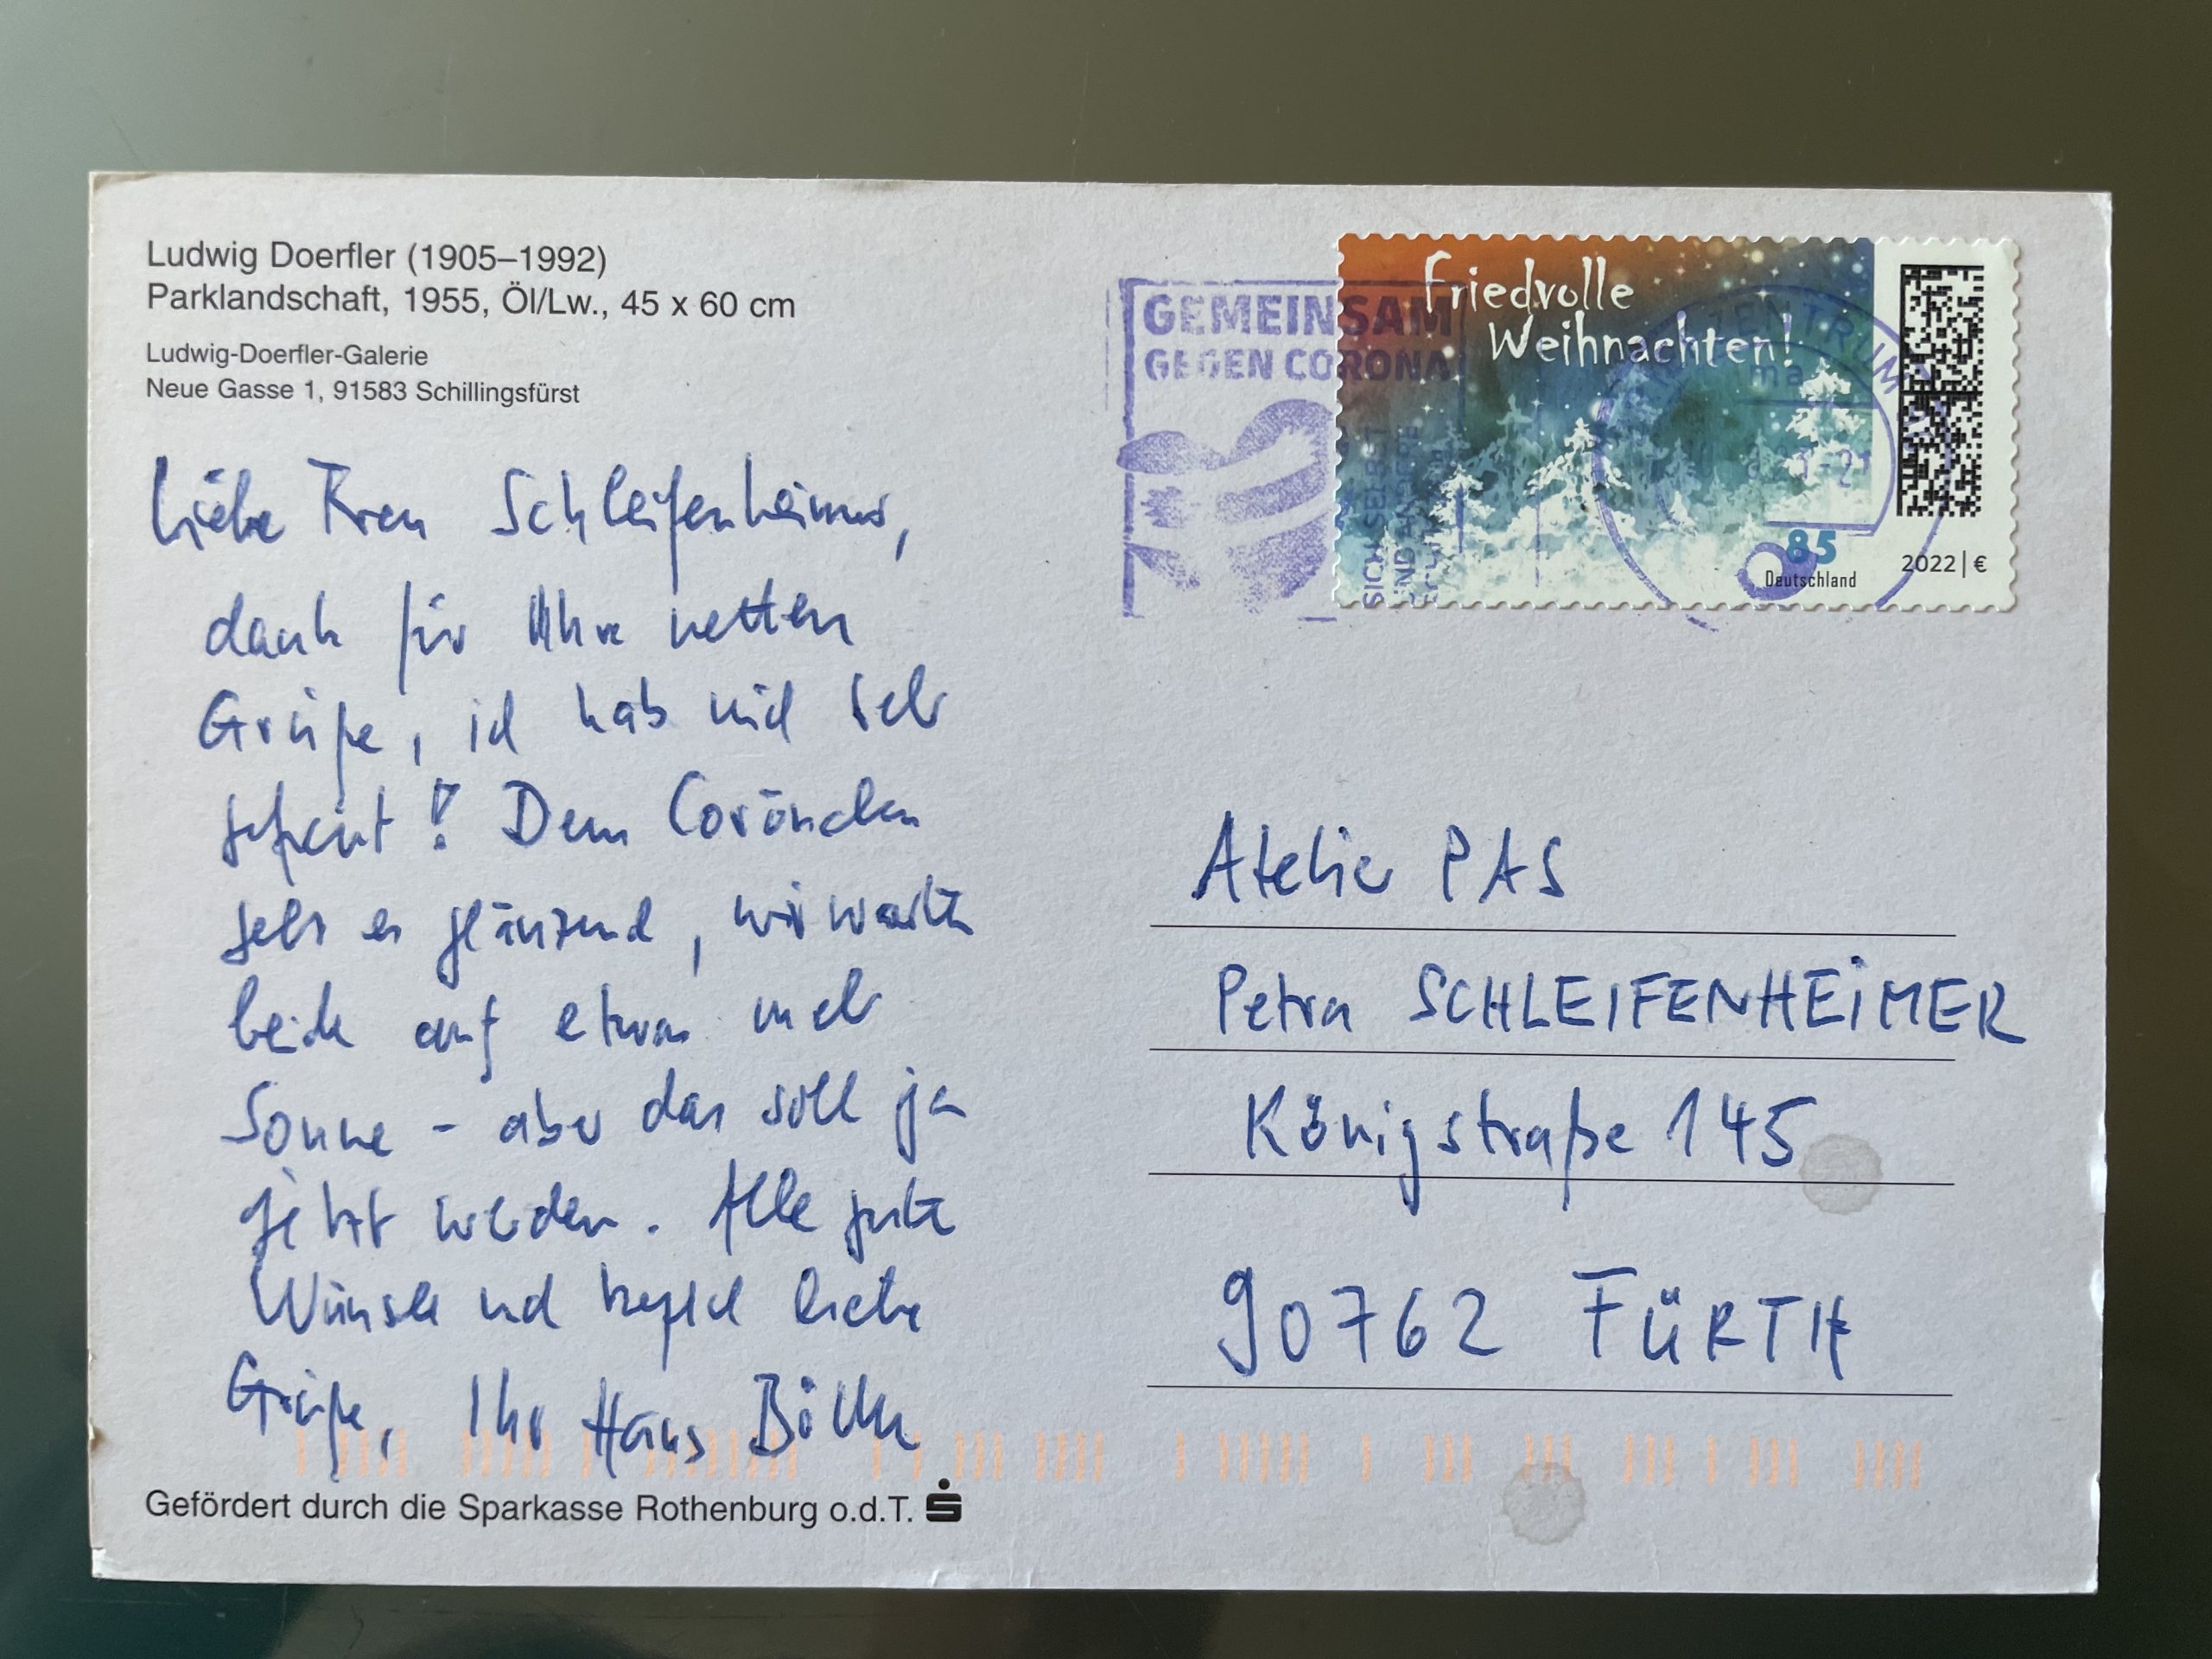 Ludwig Doerfler (1905–1992)
Parklandschaft, 1955, Öl/Lw., 45 x 60 cm
Ludwig-Doerfler-Galerie
Neue Gasse 1, 91583 Schillingsfürst
Liebe Frau Schleifenheimer,
dank für Ihre netten
Grüße, ich hab mich sehr
gefreut! Dem Corönchen
geht es glänzend, wir warten
beide auf etwas mehr
Sonne - aber das soll ja
jetzt werden. Alle gute
Wünsche und herzlich liebe
Grüße, Ihr Hans
Gefördert durch die Sparkasse Rothenburg o.d.T.
GEMEINSAM
GEGEN CORONA
SICH SELBST
UND ANDERE
Friedvolle
Weihnachten!
ZENTRUM
85
Deutschland
2022 | €
Atelier PAS
Petra SCHLEIFENHEiMER
Königstraße 145
90762 FÜRTH